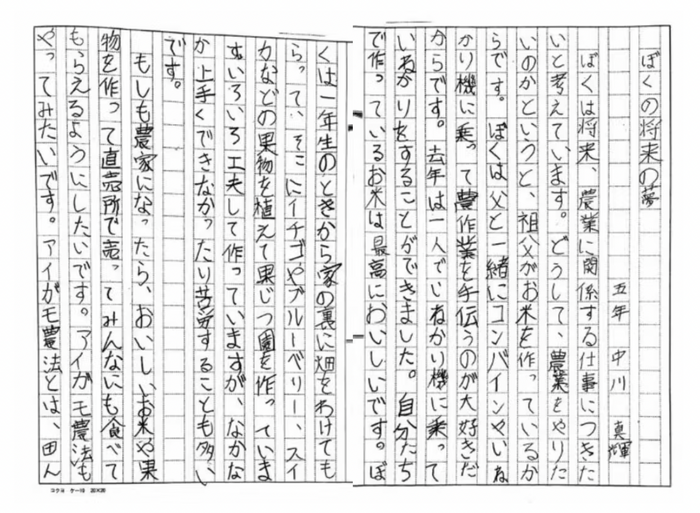 ぼくの将来の夢
五年 中川 真輝
ぼくは将来、農業に関係する仕事につきた
いと考えています。どうして、農業をやりた
いのかというと、祖父がお米を作っているか
らです。ぼくは父と一緒にコンバインやいね
かり機に乗って農作業を手伝うのが大好きだ
からです。去年は一人でいねかり機に乗って
いねかりをすることができました。自分たち
で作っているお米は最高においしいです。ぼ
くは一年生のときから家の裏に畑をわけても
らって、そこにイチゴやブルーベリー、スイ
カなどの果物を植えて果じつ園を作っていま
すいろいろ工夫して作っていますが、なかな
か上手くできなかったり苦労することも多い
です。
もしも農家になったら、おいしいお米や果
物を作って直売所で売ってみんなにも食べて
もらえるようにしたいです。アイガモ農法も
やってみたいです。アイガモ農法とは、田ん
コクヨ ケー10 20×20